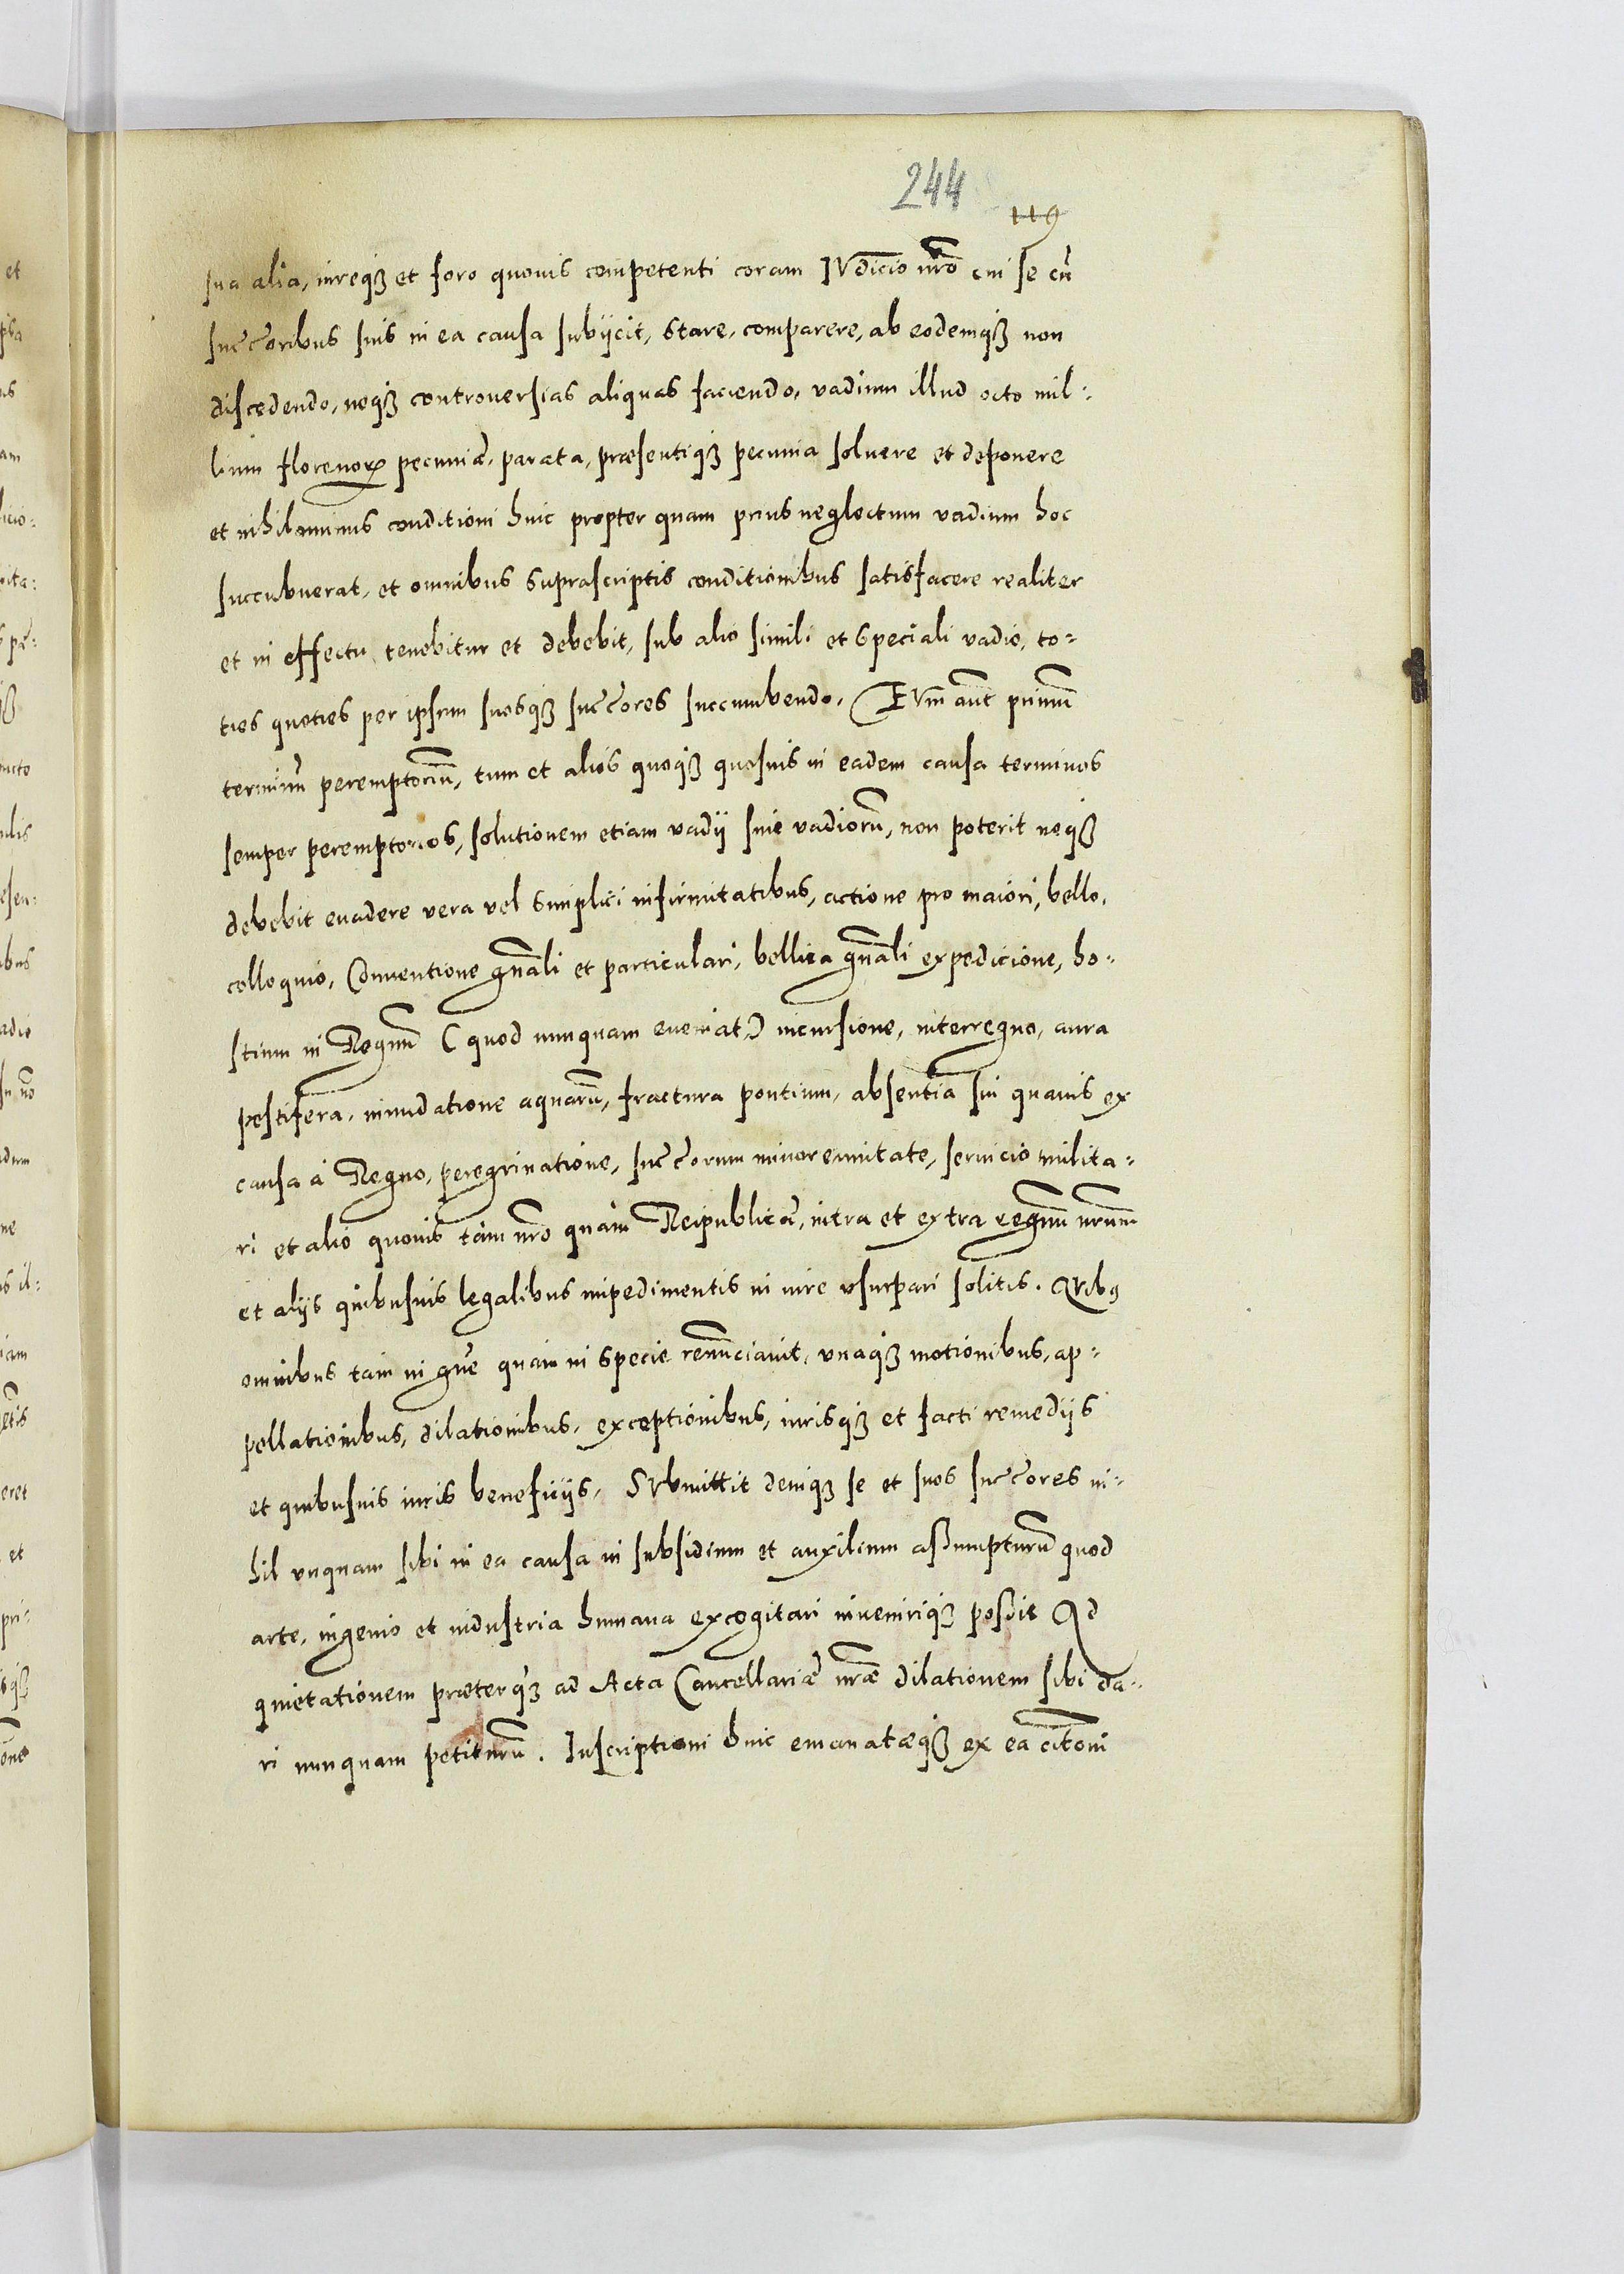 244
119
sua alia, iureqȝ et foro quouis competenti coram IVdicio nr̃o cui se cũ
succ̃oribus suis in ea causa subijcit, stare, comparere, ab eodemqȝ non
discedendo, neqȝ controuersias aliquas faciendo, vadium illud octo mil-
lium florenorꝝ pecuniæ, parata, præsentiqȝ pecunia soluere et deponere
et nihilominus conditioni huic propter quam prius neglectum vadium hoc
succubuerat, et omnibus suprascriptis conditionibus satisfacere realiter
et in effectu tenebitur et debebit, sub alio simili et speciali vadio, to-
ties quoties per ipsum suosqȝ succ̃ores succumbendo. EVm aũt primũ
terminũ peremptoriũ, tum et alios quoqȝ quosuis in eadem causa terminos
semper peremptorios, solutionem etiam vadij siue vadiorũ, non poterit neqȝ
debebit euadere vera vel simplici infirmitatibus, actione pro maiori, bello,
colloquio, Conuentione gñali et particulari, bellica gñali expedicione, ho-
stium in Regnũ (quod nunquam eueniat) incursione, interregno, aura
pestifera, inundatione aquarũ, fractura pontium, absentia sui quauis ex
causa à Regno, peregrinatione, succ̃orum minorennitate, seruicio milita-
ri et alio quouis tàm nr̃o quàm Reipublicæ, intra et extra regnũ nr̃um
et alijs quibusuis legalibus impedimentis in iure vsurpari solitis. QVibꝯ
omnibus tam in gñe quam in specie renũciauit, vnaqȝ motionibus, ap-
pellationibus, dilationibus, exceptionibus, iurisqȝ et facti remedijs
et quibusuis iuris beneficijs. SVbmittit deniqȝ se et suos succ̃ores ni-
hil vnquam sibi in ea causa in subsidium et auxilium assumpturũ quod
arte, ingenio et industria humana excogitari inueniriqȝ possit Qd
quietationem præterqȝ ad Acta Cancellariæ nr̃æ dilationem sibi da-
ri nunquam petiturũ. Inscriptioni huic emanatæqȝ ex ea cit̃oni